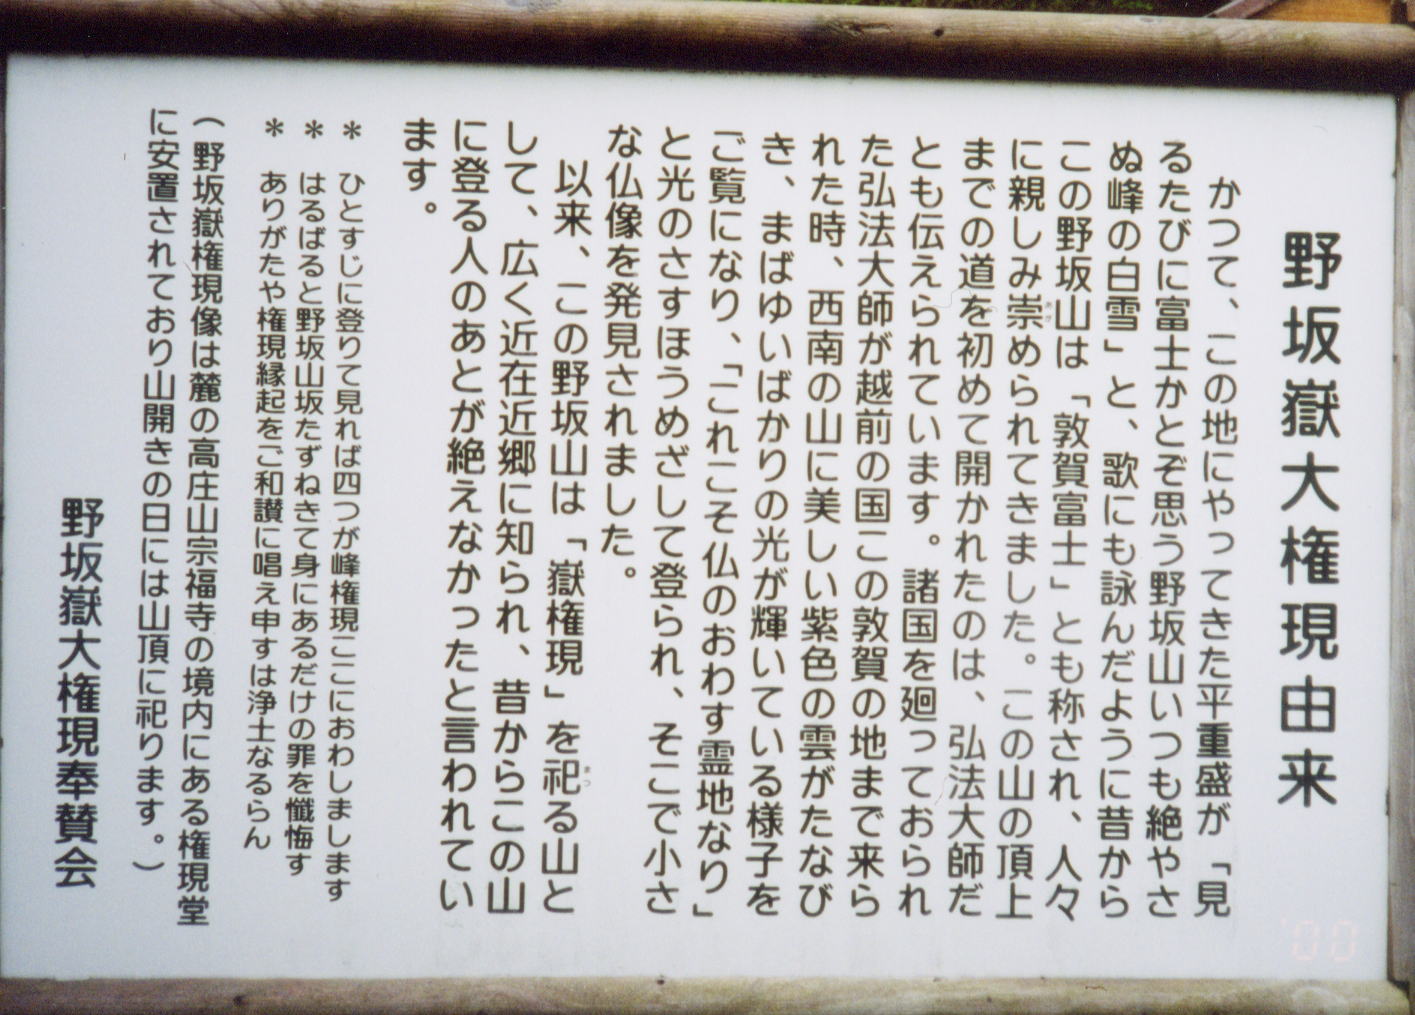 野坂嶽大権現由来
かつて、この地にやってきた平重盛が「見
るたびに富士かとぞ思う野坂山いつも絶やさ
ぬ峰の白雪」と、歌にも詠んだように昔から
この野坂山は「敦賀富士」とも称され、人々
に親しみ崇められてきました。この山の頂上
までの道を初めて開かれたのは、弘法大師だ
とも伝えられています。諸国を廻っておられ
た弘法大師が越前の国この敦賀の地まで来ら
れた時、西南の山に美しい紫色の雲がたなび
き、まばゆいばかりの光が輝いている様子を
ご覧になり、「これこそ仏のおわす霊地なり」
と光のさすほうめざして登られ、そこで小さ
な仏像を発見されました。
以来、この野坂山は「嶽権現」を祀る山と
して、広く近在近郷に知られ、昔からこの山
に登る人のあとが絶えなかったと言われてい
ます。
＊ ひとすじに登りて見れば四つが峰権現ここにおわしまします
＊ はるばると野坂山坂たずねきて身にあるだけの罪を懺悔す
＊ ありがたや権現縁起をご和讃に唱え申すは浄土なるらん
（野坂嶽権現像は麓の高庄山宗福寺の境内にある権現堂
に安置されており山開きの日には山頂に祀ります。）
野坂嶽大権現奉賛会
'00